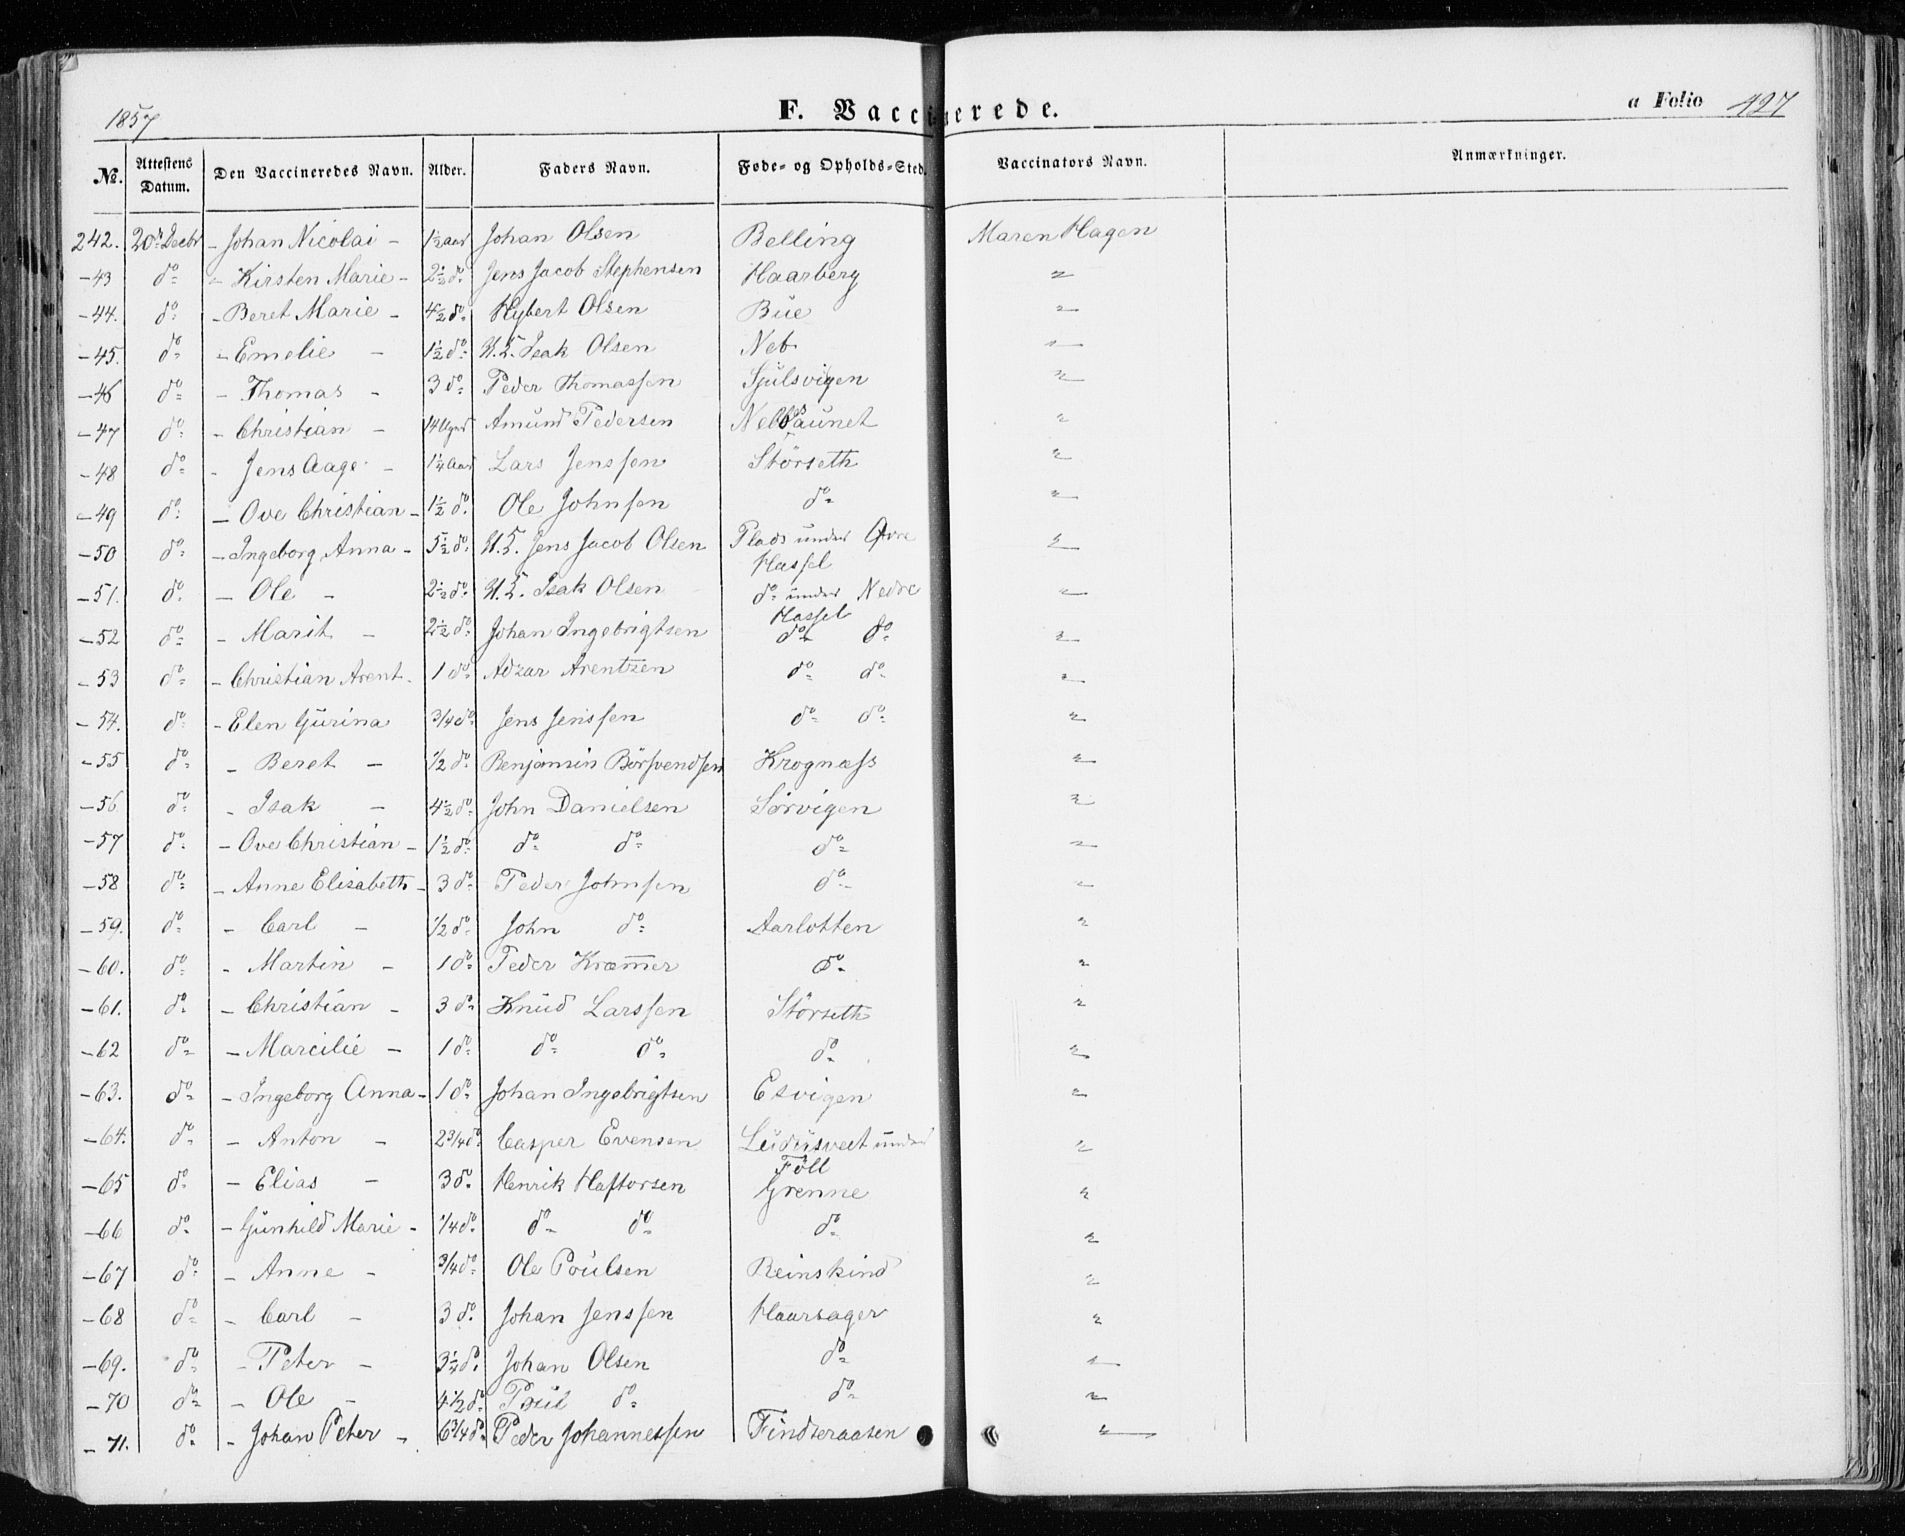 1857 F. Vaccinerede. a Folio 427
No. Attestens Datum. Den Vaccineredes Navn. Alder. Faders Navn. Føde- og Opholds-Sted. Vaccinators Navn. Anmærkninger.
242. 20de Decbr - Johan Nicolai - 1½ Aar Johan Olsen Belling Maren Hagen
-43 do - Kirsten Marie - 2½ do Jens Jacob Stephensen Haarberg "
-44. do - Beret Marie - 4½ do Hybert Olsen Bue "
-45. do - Emelie - 1½ do U.E. Isak Olsen Neb "
-46 do - Thomas - 3 do Peder Thomassen Sjulsvigen "
-47 do - Christian - 14 Uger Amund Pedersen Nebbsaunet "
-48 do - Jens Aage - 1¼ Aar Lars Jenssen Störseth "
-49 do - Ove Christian - 1½ do Ole Johnsen do "
-50 do - Ingeborg Anna - 5½ do U.E. Jens Jacob Olsen Plads under Øvre Hassel "
-51. do - Ole - 2½ do U.E. Isak Olsen do under Nedre Hassel "
-52 do - Marit - 2½ do Johan Ingebrigtsen do do "
-53 do - Christian Arent - 1 do Adzar Arentzen do do "
-54. do - Elen Gurina 3/4 do Jens Jenssen do do "
-55 do - Beret - 1/2 do Benjamin Börsvendsen Krognæss "
-56 do - Isak - 4½ do John Danielsen Sörvigen "
-57 do - Ove Christian - 1½ do do do do "
-58 do - Anne Elisabeth - 3 do Peder Johnsen do "
-59. do - Carl - 1/2 do John do Aarlotten "
-60. do - Martin - 1 do Peder Kræmer do "
-61. do - Christian - 3 do Knud Larssen Störseth "
-62 do - Marcilie - 1 do do do do "
-63. do - Ingeborg Anna - 1 do Johan Ingebrigtsen Esvigen "
-64. do - Anton - 2 3/4 do Casper Evensen under Föll "
-65 do - Elias - 3 do Henrik Haftorsen Grenne "
-66 do - Gunhild Marie - 1/4 do do do do "
-67 do - Anne - 3/4 do Ole Poulsen Reinskind "
-68 do - Carl - 3 do Johan Jenssen Haarsager "
-69. do - Peter - 3½ do Johan Olsen do "
-70 do - Ole - 4½ do Poul do do "
-71. do - Johan Peter - 6 3/4 do Peder Johannessen Findseraasen "